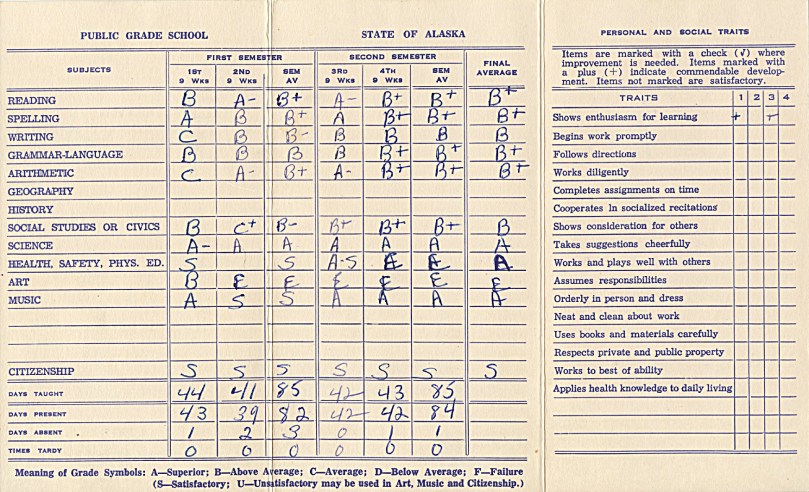 PUBLIC GRADE SCHOOL STATE OF ALASKA
SUBJECTS FIRST SEMESTER SECOND SEMESTER FINAL AVERAGE
1ST 9 WKS 2ND 9 WKS SEM AV 3RD 9 WKS 4TH 9 WKS SEM AV
READING B A- B+ A- B+ B+ B+
SPELLING A B B+ A B+ B+ B+
WRITING C B B- B B B B
GRAMMAR-LANGUAGE B B B B B+ B+ B+
ARITHMETIC C A- B+ A- B+ B+ B+
GEOGRAPHY
HISTORY
SOCIAL STUDIES OR CIVICS B C+ B- B+ B+ B+ B
SCIENCE A- A A A A A A
HEALTH, SAFETY, PHYS. ED. S S A-S A
ART B E E E E E E
MUSIC A S S A A A A
CITIZENSHIP S S S S S S S
DAYS TAUGHT 44 41 85 42 43 85
DAYS PRESENT 43 39 82 42 42 84
DAYS ABSENT 1 2 3 0 1 1
TIMES TARDY 0 0 0 0 0 0
Meaning of Grade Symbols: A—Superior; B—Above Average; C—Average; D—Below Average; F—Failure
(S—Satisfactory; U—Unsatisfactory may be used in Art, Music and Citizenship.)
PERSONAL AND SOCIAL TRAITS
Items are marked with a check (√) where
improvement is needed. Items marked with
a plus (+) indicate commendable develop-
ment. Items not marked are satisfactory.
TRAITS 1 2 3 4
Shows enthusiasm for learning +
Begins work promptly
Follows directions
Works diligently
Completes assignments on time
Cooperates in socialized recitations
Shows consideration for others
Takes suggestions cheerfully
Works and plays well with others
Assumes responsibilities
Orderly in person and dress
Neat and clean about work
Uses books and materials carefully
Respects private and public property
Works to best of ability
Applies health knowledge to daily living